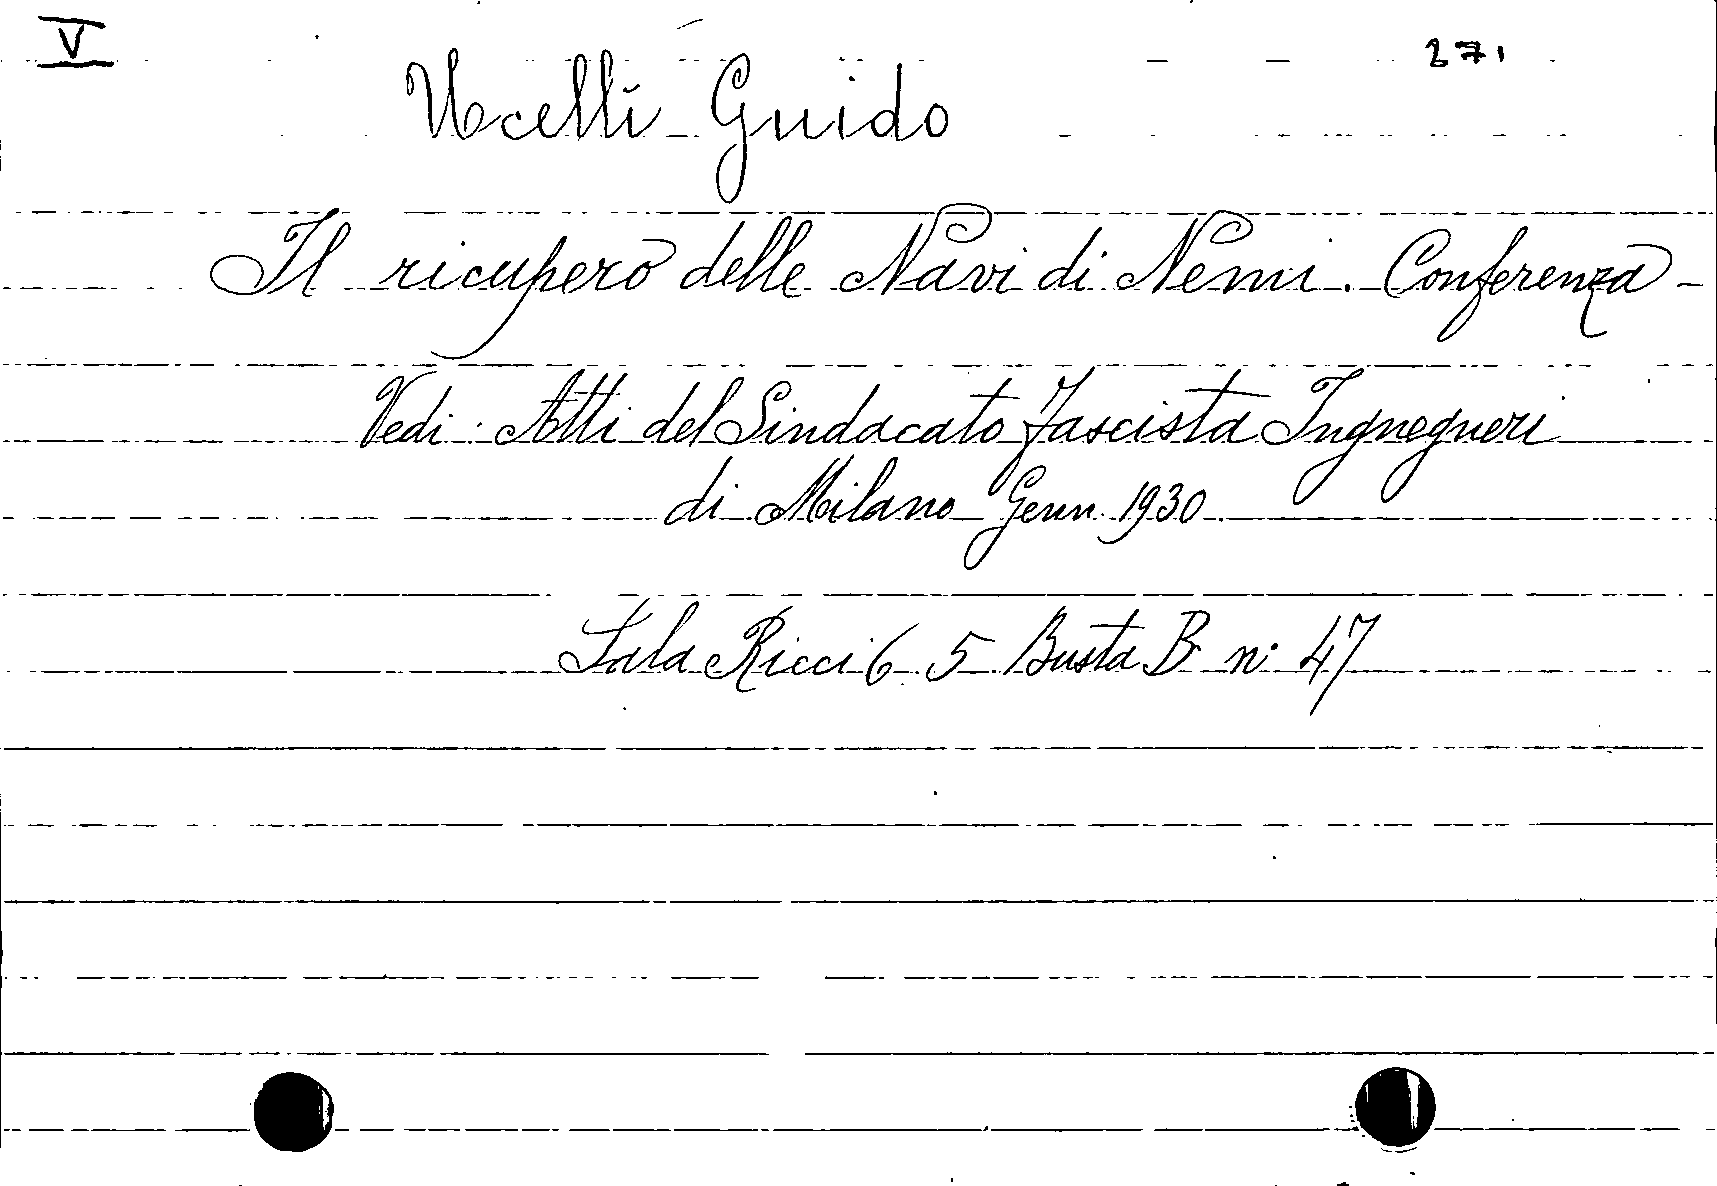 V
271
Ucelli Guido
Il ricupero delle Navi di Nemi. Conferenza -
Vedi: Atti del Sindacato Fascista Ingnegneri
di Milano Genn. 1930.
Sala Ricci 6. 5 Busta B n. 47